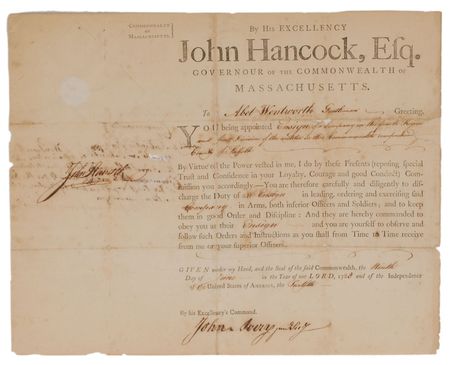 COMMONWEALTH
OF
MASSACHUSETTS.
By His EXCELLENCY
John Hancock, Esq.
GOVERNOUR OF THE COMMONWEALTH OF
MASSACHUSETTS.
To Abel Wentworth Gentleman Greeting.
YOU being appointed Ensign of a Company in the
By Virtue of the Power vested in me, I do by these Presents (reposing special
Trust and Confidence in your Loyalty, Courage and good Conduct) Com-
mission you accordingly—You are therefore carefully and diligently to dis-
charge the Duty of an Ensign in leading, ordering and exercising said
Company in Arms, both inferior Officers and Soldiers; and to keep
them in good Order and Discipline: And they are hereby commanded to
obey you as their Ensign and you are yourself to observe and
follow such Orders and Instructions as you shall from Time to Time receive
from me or your superior Officers.
John Hancock
GIVEN under my Hand, and the Seal of the said Commonwealth, the
Day of June in the Year of our LORD, 178 and of the Independence
of the United States of AMERICA, the
By his Excellency's Command.
John Avery jun Secy